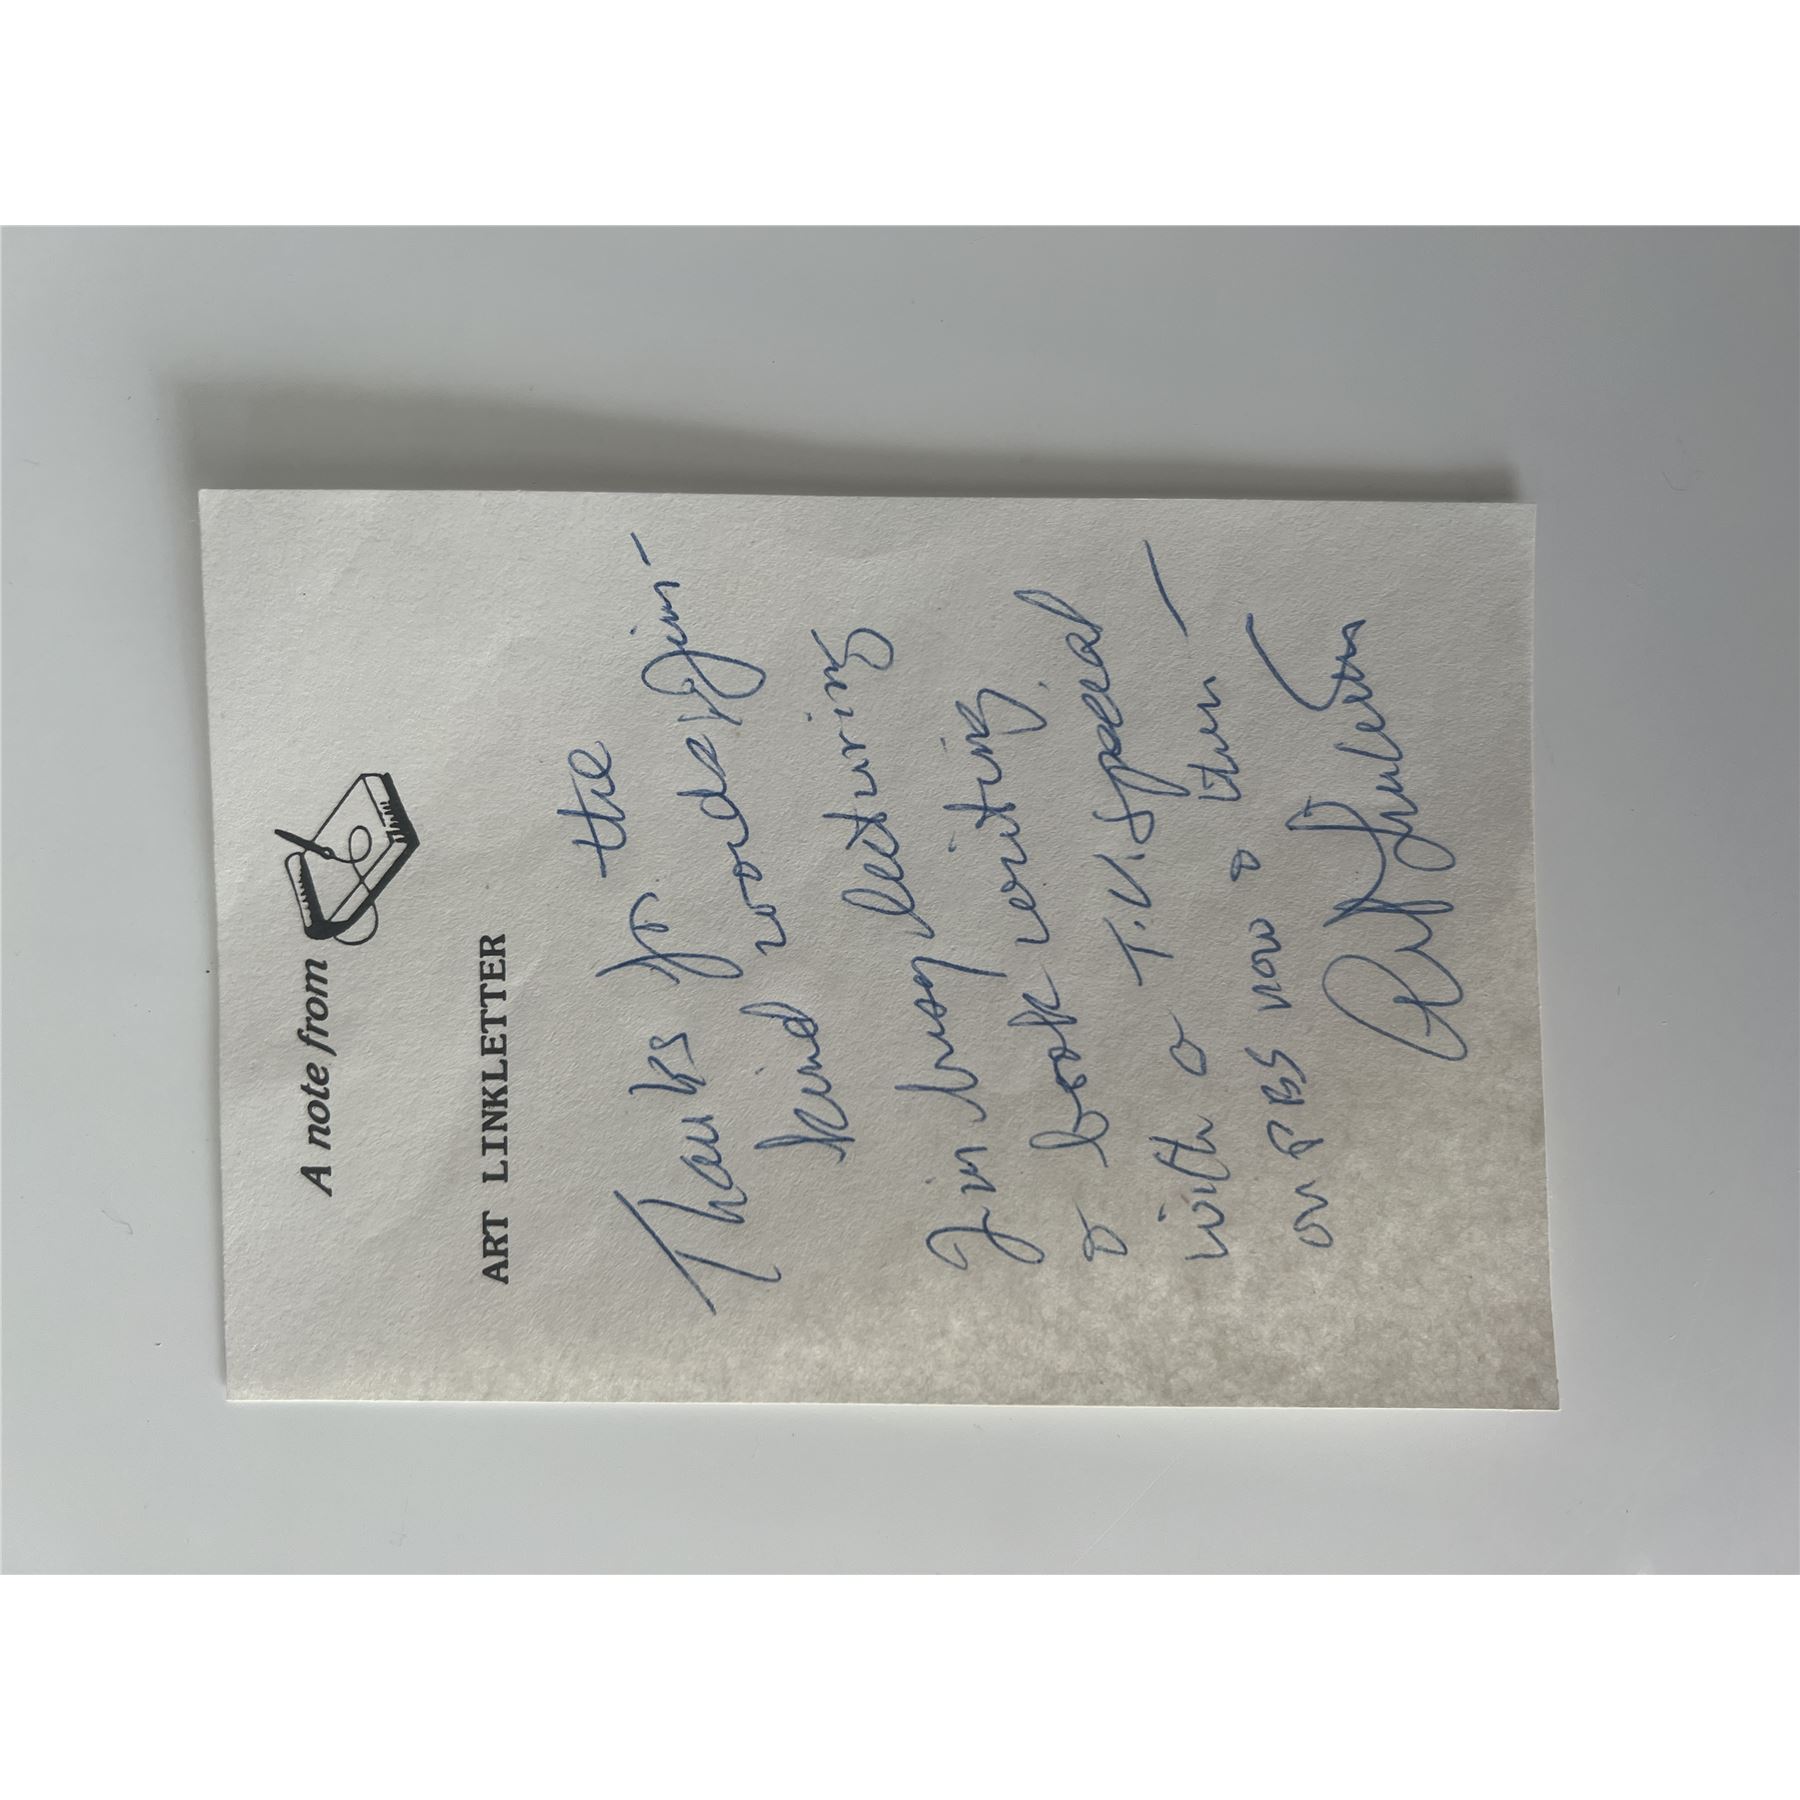 A note from
ART LINKLETTER
Thanks for the
kind words, Jim -
I'm busy lecturing
& book writing,
with a T.V. special
on PBS now & then -
Art Linkletter